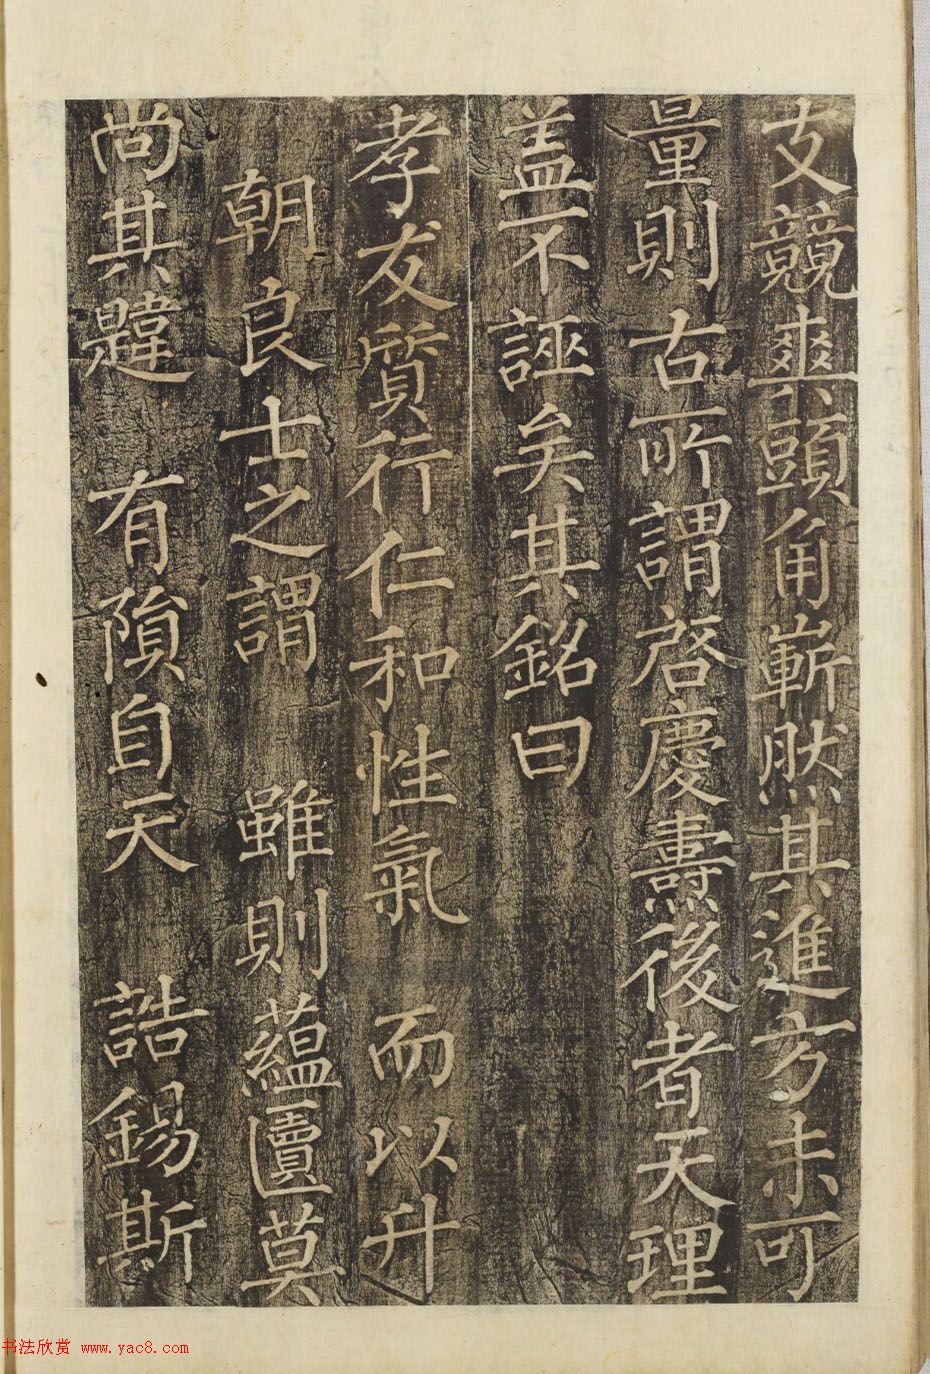 支競爽頭角嶄然其進方未可
量則古所謂啓慶燾後者天理
盖不誣矣其銘曰
孝友質行仁和性氣 而以升
朝良士之謂 雖則蘊匵莫
尚其韙 有隕自天 誥錫斯
书法欣赏 www.yac8.com